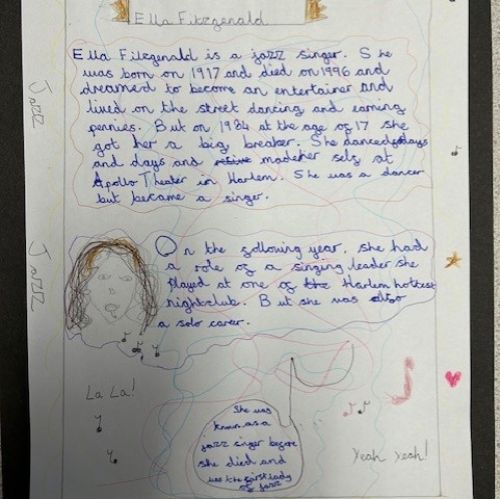 Ella Fitzgenald
Ella Filzgenald is a jazz singer. She
was born on 1917 and died on 1996 and
dreamed to become an entertainer and
lived on the street dancing and earning
pennies. But on 1984 at the age of 17 she
got her a big breaker. She danced days
and days and made her sely at
Apollo Theater in Harlem. She was a dancer
but became a singer.
Jazz
Jazz
On the following year, she had
a role of a singing leader she
played at one of the Harlem hottest
nightclub. But she was also
a solo career.
La La!
She was
known as a
jazz singer before
she died and
was the first lady
of jazz
Yeah Yeah!